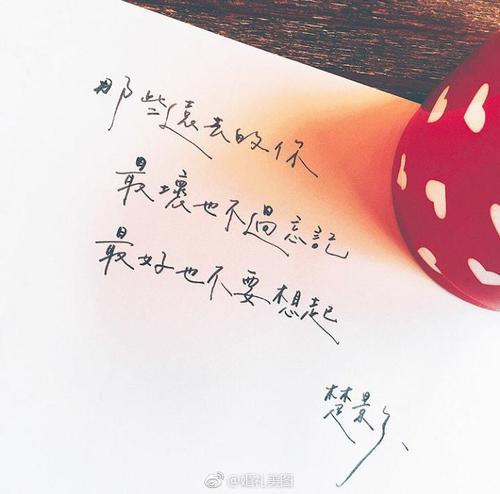 那些遠去的你
最壞也不過忘記
最好也不要想起
楚景
@婚礼美图